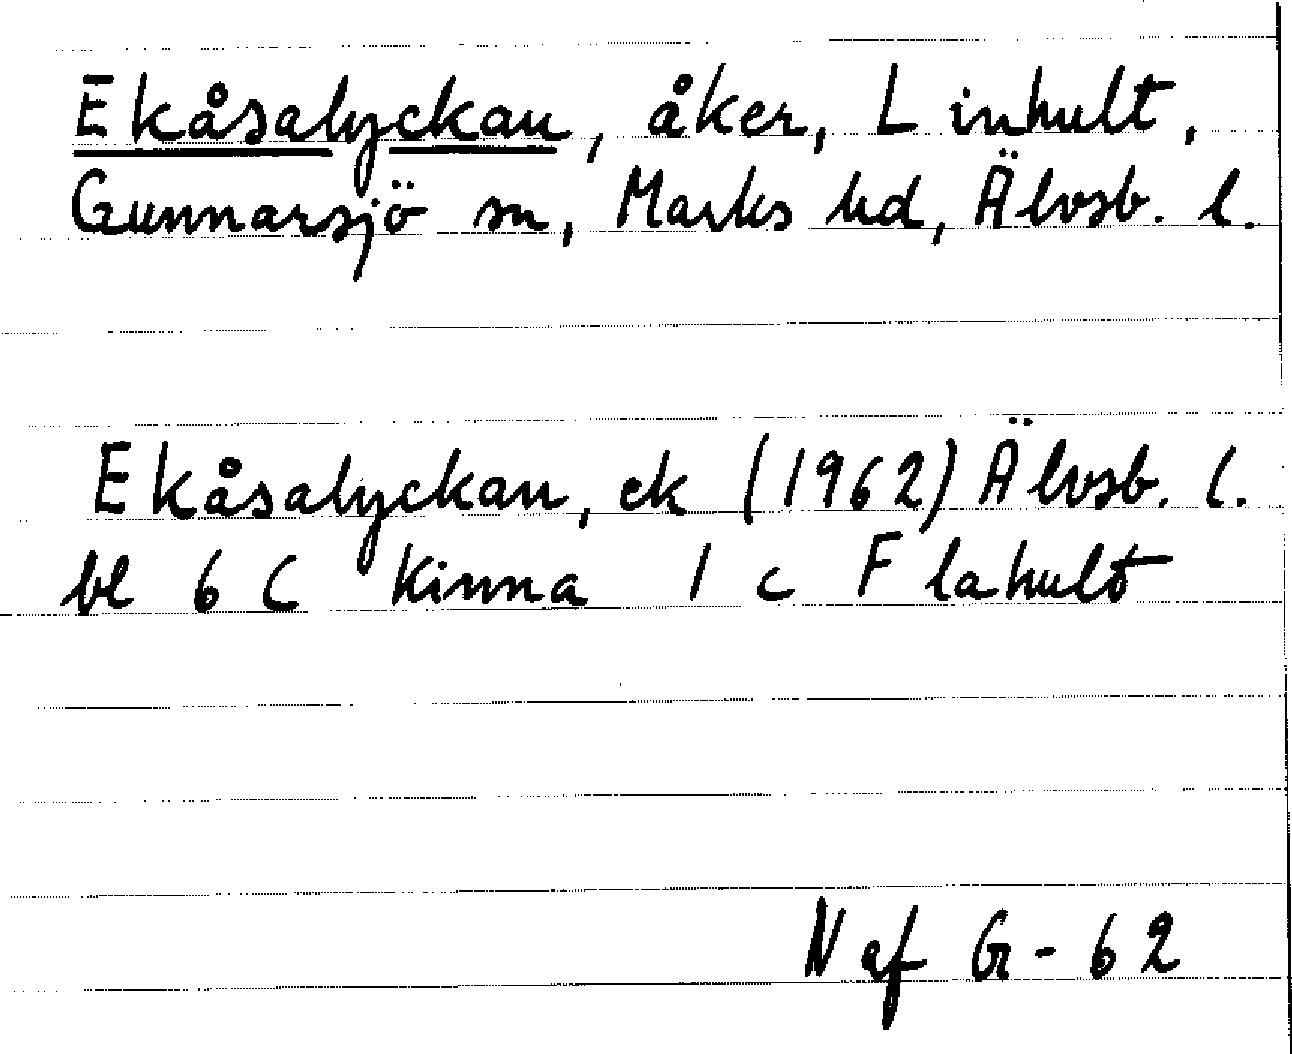 Ekåsalyckan, åker, Linhult,
Gunnarsjö sn, Marks hd, Älvsb. l.
Ekåsalyckan, ek (1962) Älvsb. l.
bl 6 C Kinna 1 c Flahult
N af G-62